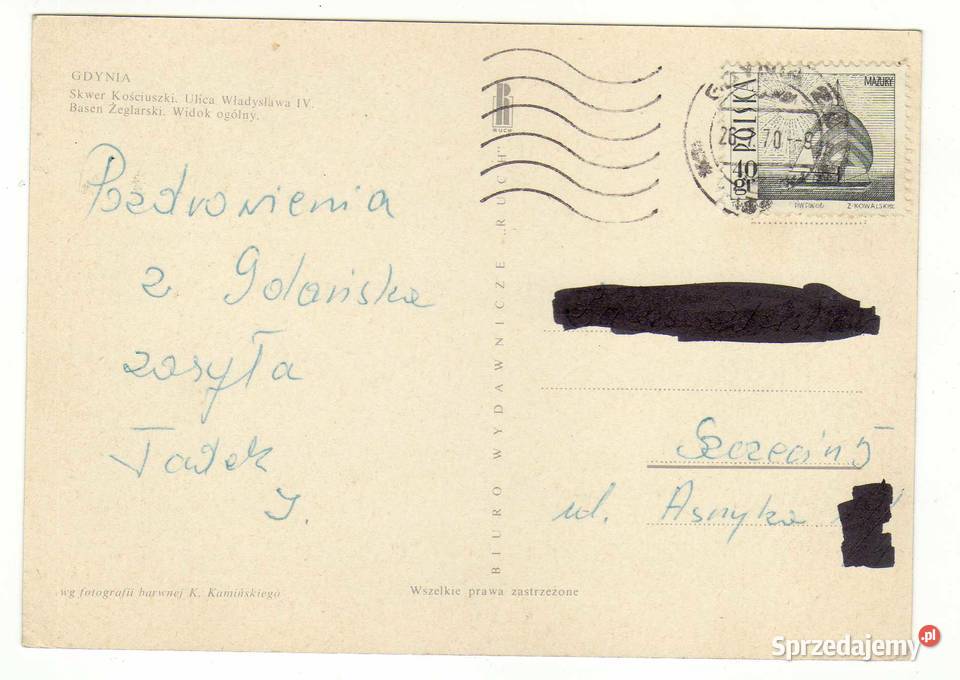 GDYNIA
Skwer Kościuszki. Ulica Władysława IV.
Basen Żeglarski. Widok ogólny.
Pozdrowienia
z Gdańska
zasyła
Tadek
J.
wg fotografii barwnej K. Kamińskiego
BIURO WYDAWNICZE „RUCH"
RUCH
Wszelkie prawa zastrzeżone
MAZURY
POLSKA
40 gr
PWPW 66
Z. KOWALSKI
26 70 -9
Szczecin 5
ul. Asnyka
Sprzedajemy.pl